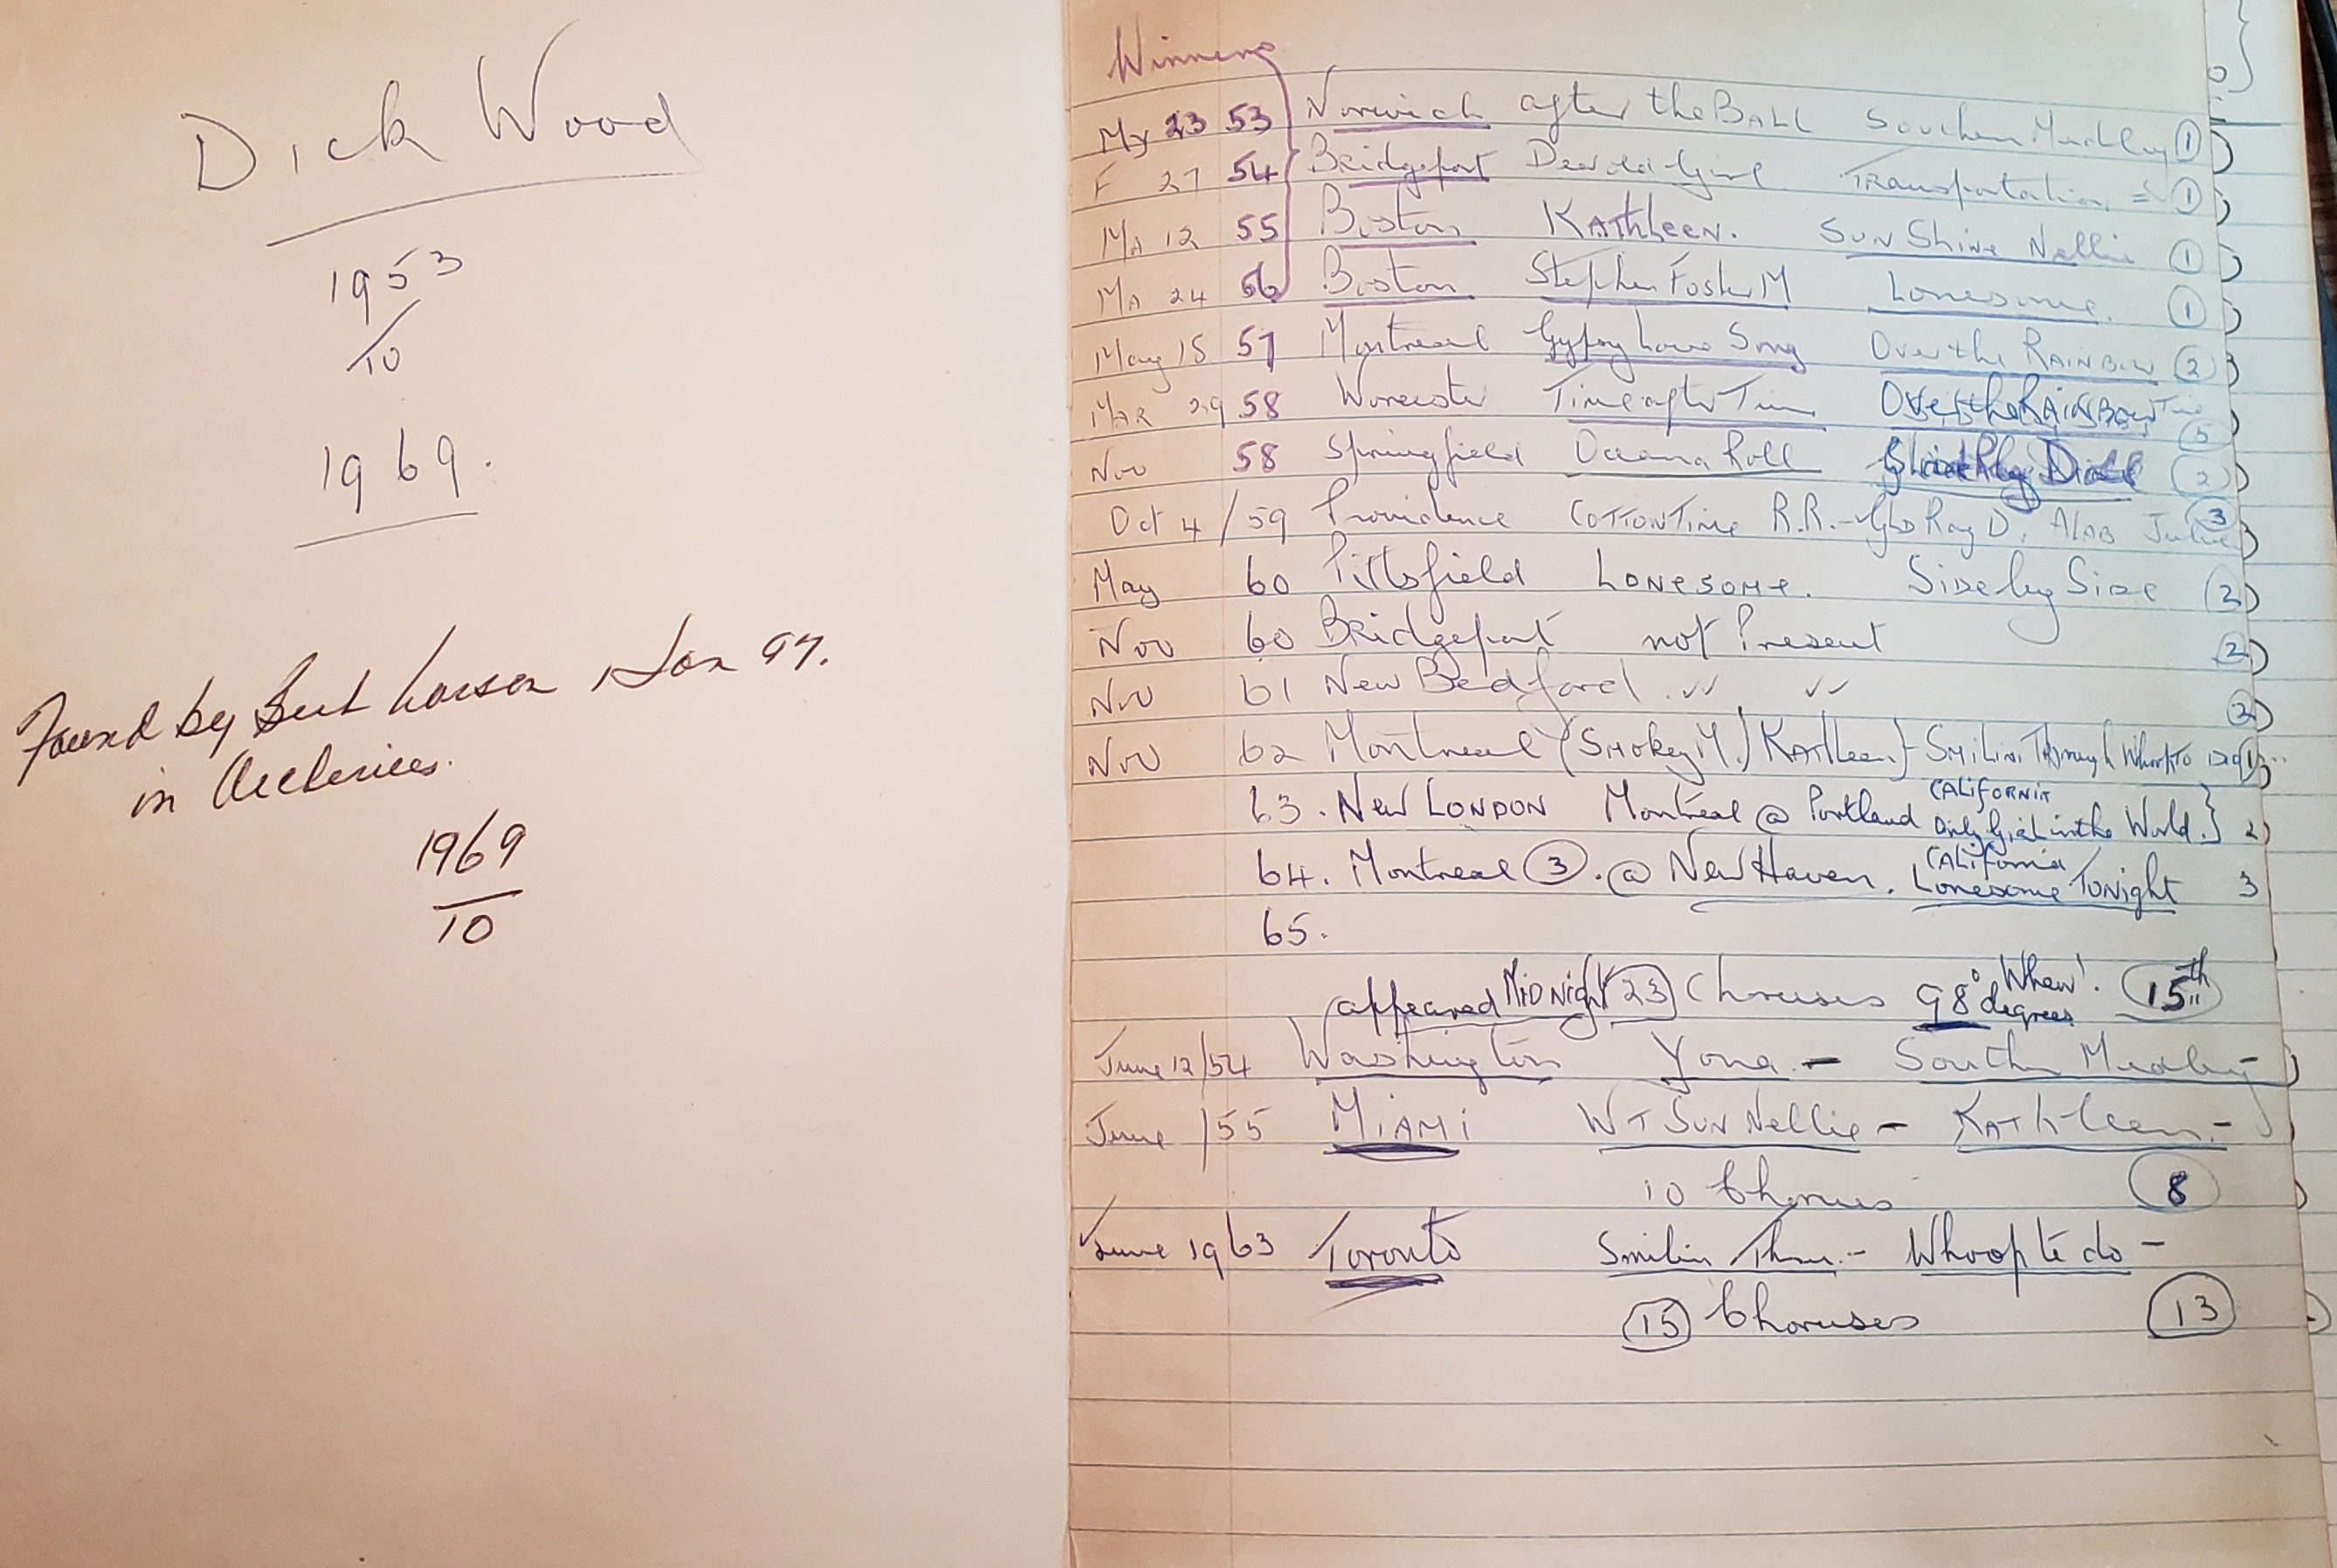 Dick Wood
1953
10
1969.
Found by Bert Larson Jan 97.
in Archives.
1969
10
Winners
My 23 53 Norwich after the BALL Southern Medley 1
F 27 54 Bridgeport Dear old Girl Transportation 1
MA 12 55 Boston KAthleen. SUN Shine Nellie 1
MA 24 56 Boston Stephen Foster M Lonesome. 1
May 15 57 Montreal Gypsy Love Song Over the RAINBOW 2
MAR 29 58 Worcester Time after Time Over the RAINBOW 5
Nov 58 Springfield Oceana Roll 2
Oct 4 / 59 Providence COTTON Time R.R. - Gld Rag D. ALAB Jubilee 3
May 60 Pittsfield LONESOME. SIDE by SIDE 2
Nov 60 BRidgeport not Present 2
Nov 61 New Bedford. 〃 〃 2
Nov 62 Montreal (SMOkey M.) KAthleen} - SMiLin Through 1
63. New LONDON Montreal @ Portland CALIFORNIA Only Girl in the World.} 2
64. Montreal 3. @ New Haven. CALifornia Lonesome TONight 3
65.
appeared MIDNight 23 Choruses 98° degrees Whew! 15th
June 12/54 Washington Yona - South Medley -
June /55 MiAMi W T SUN Nellie - KAthleen. -
10 Chorus 8
June 1963 Toronto Smilin Thru. - Whoop te do -
15 Choruses 13